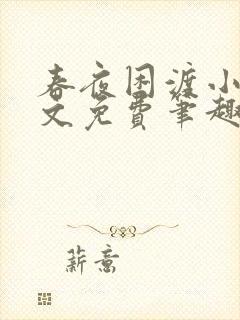 春夜困渡小
文免费笔趣
薪意